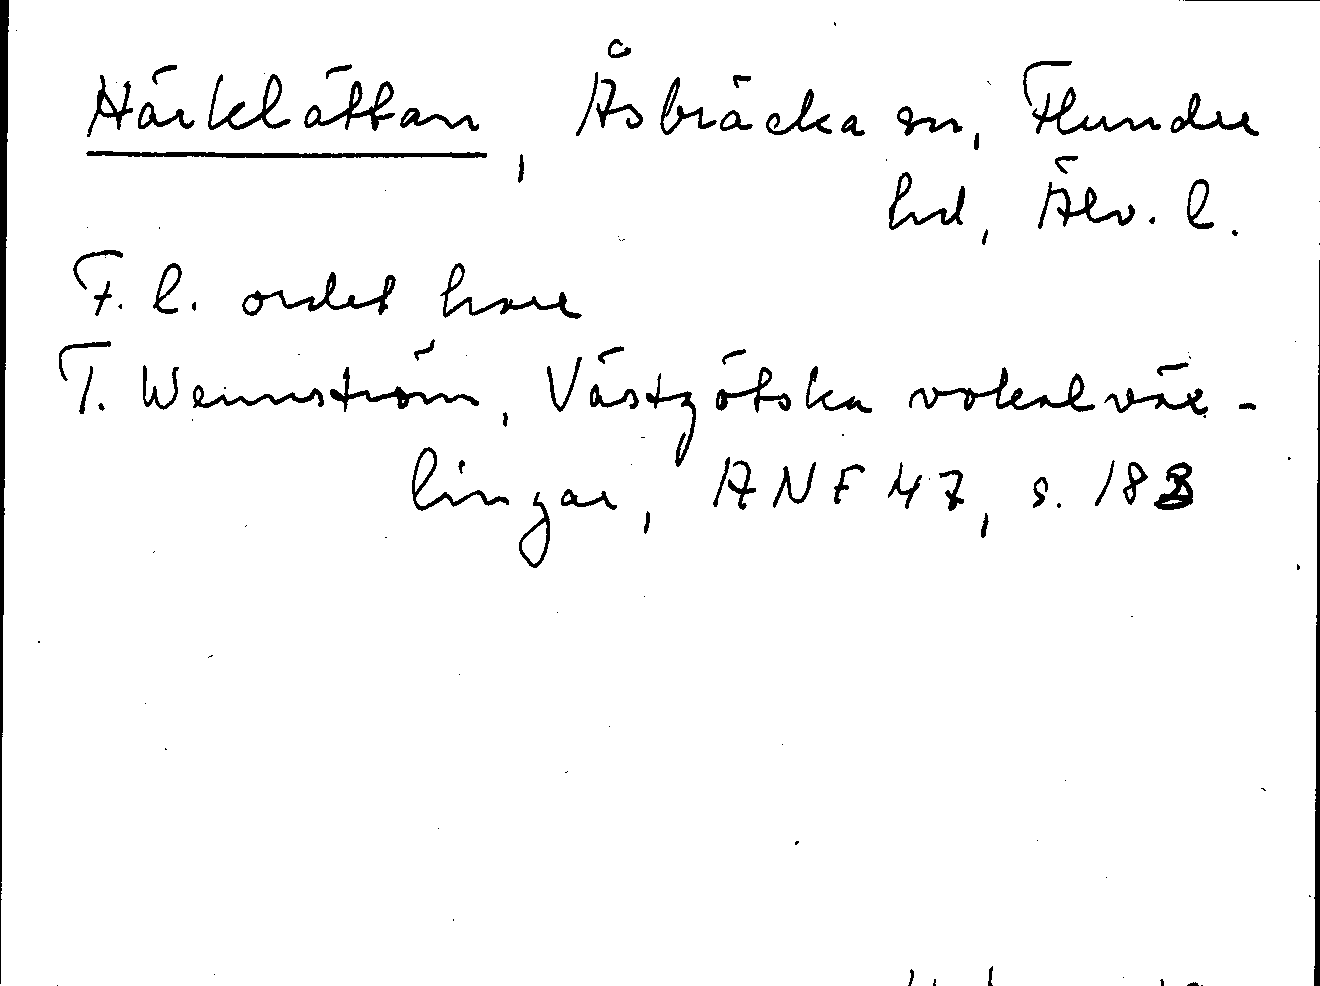 Härklättan, Åsbräcka sn, Flundre
hd, Älv. l.
F. l. ordet hare
T. Wennström, Västgötska vokalväx-
lingar, ANF 47, s. 183